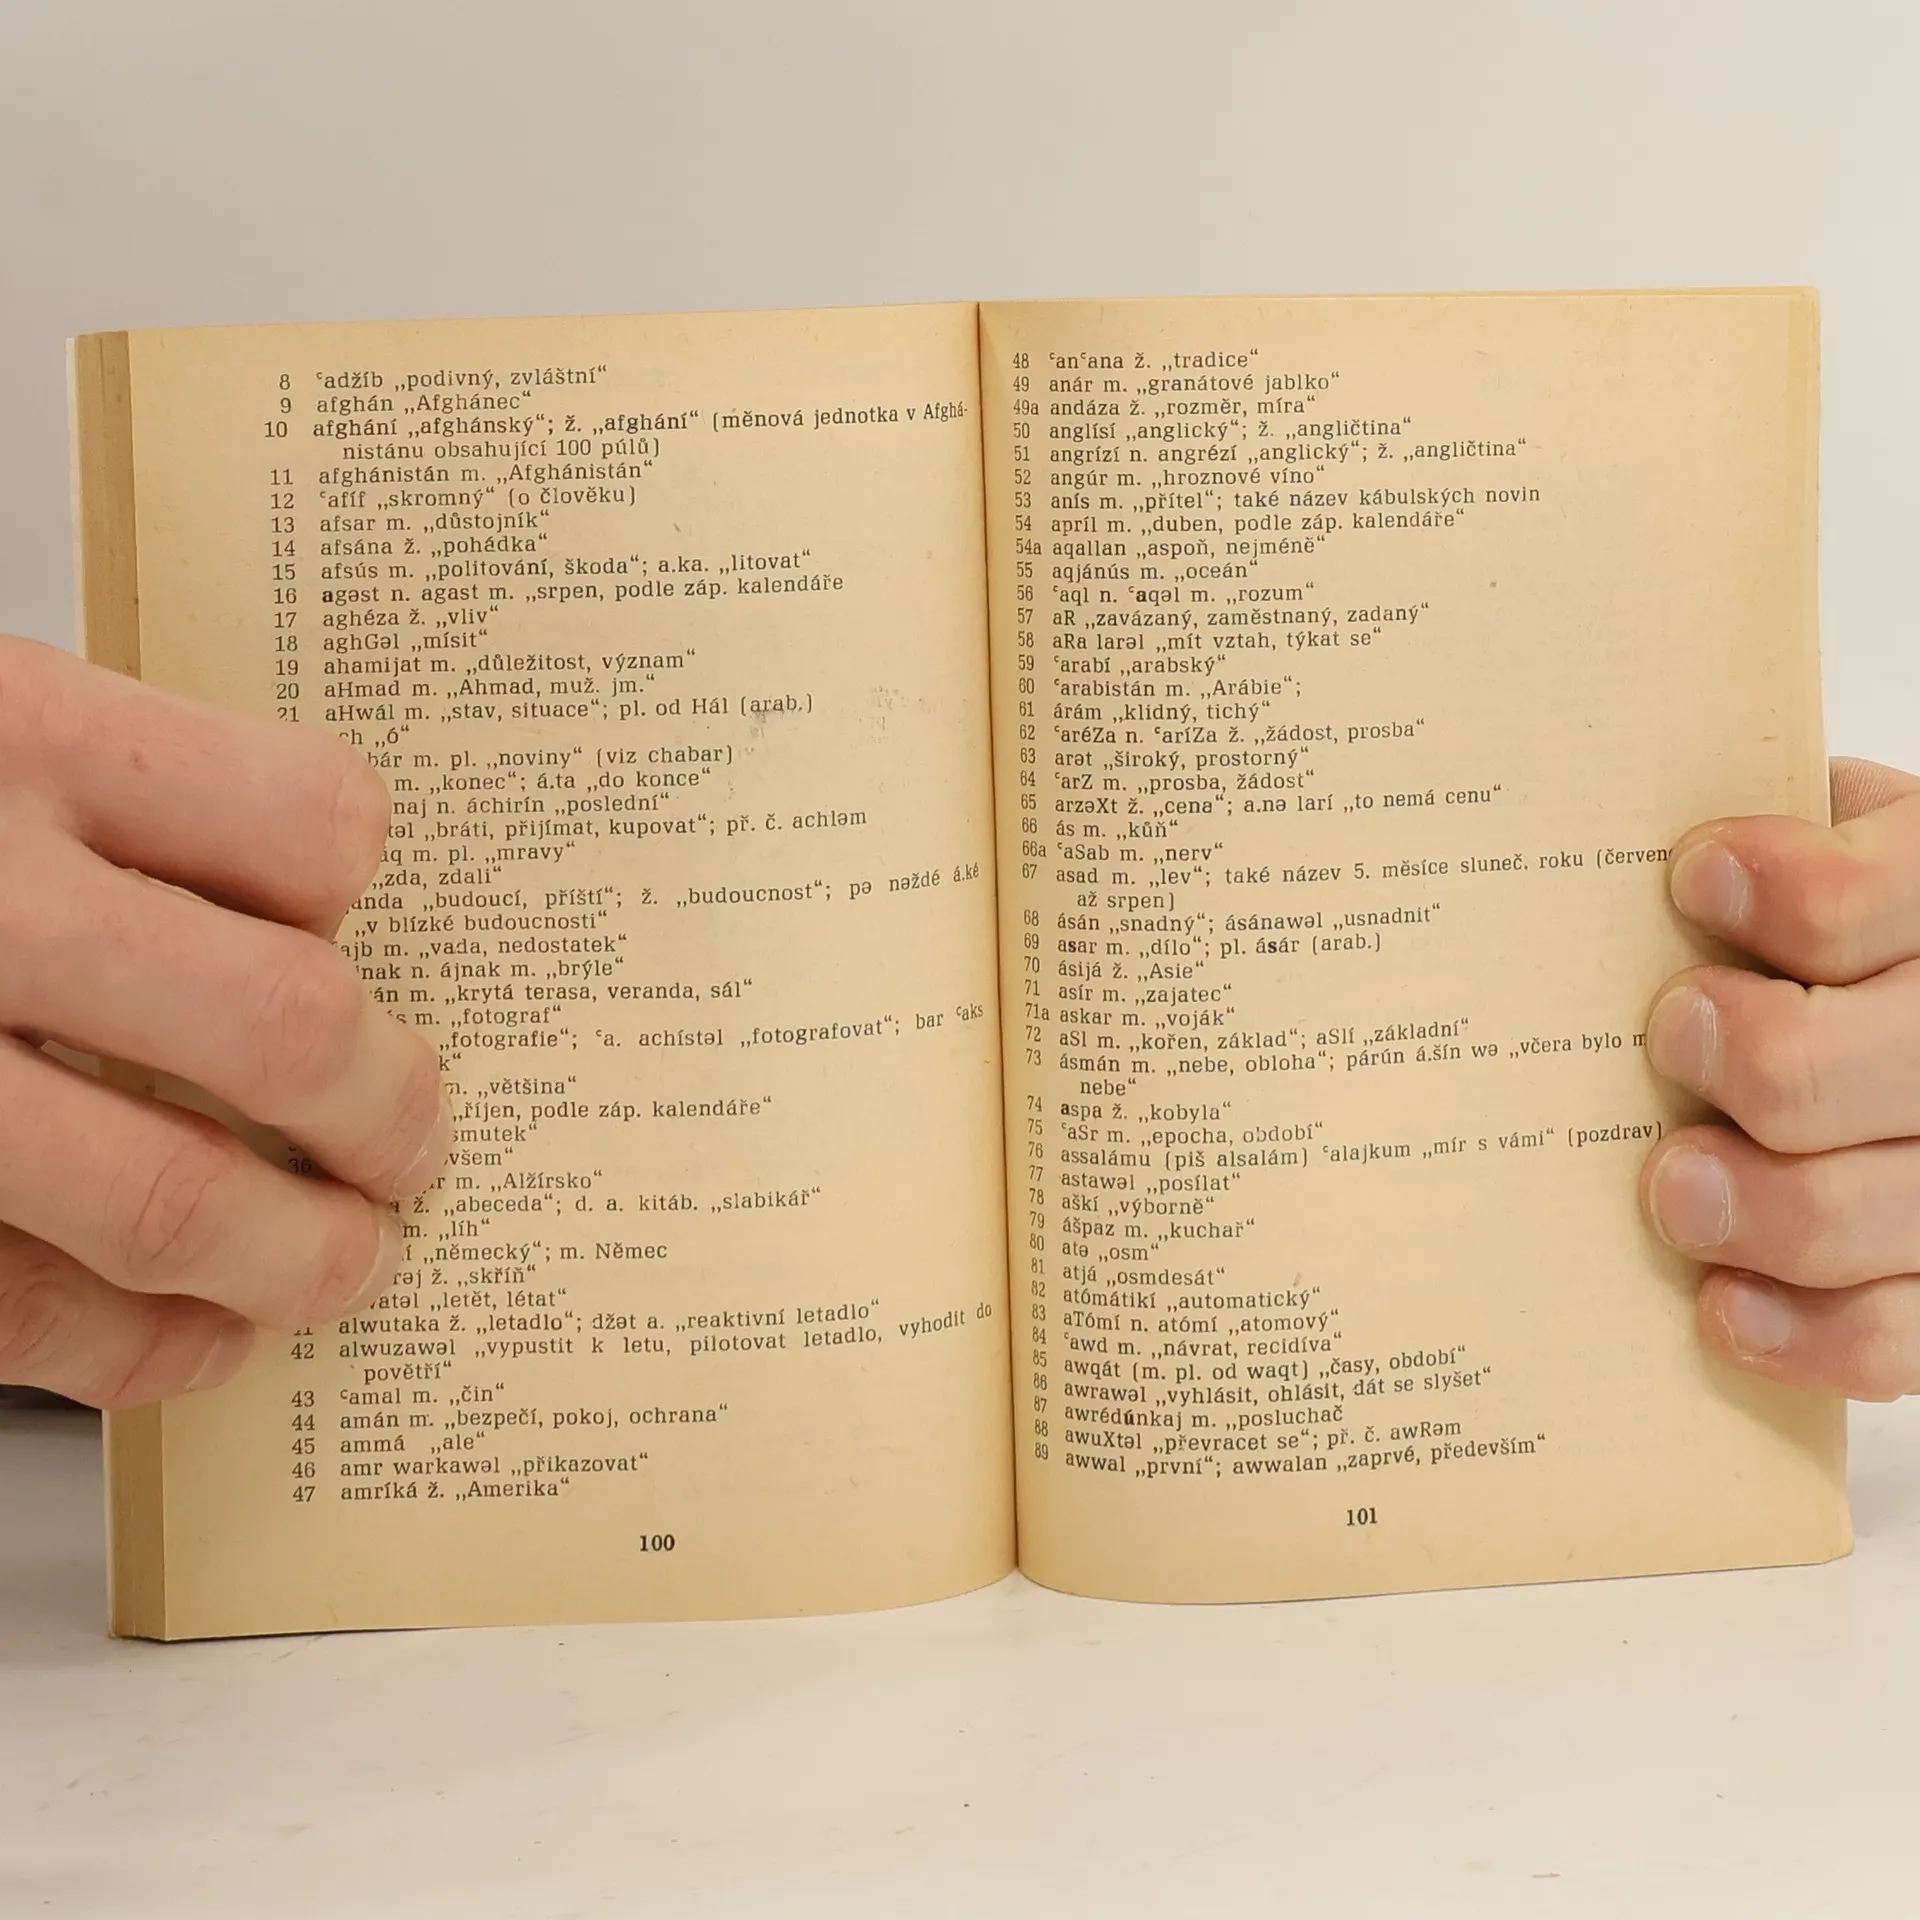 8 ʿadžíb „podivný, zvláštní“
9 afghán „Afghánec“
10 afghání „afghánský“; ž. „afghání“ (měnová jednotka v Afghá-
nistánu obsahující 100 púlů)
11 afghánistán m. „Afghánistán“
12 ʿafíf „skromný“ (o člověku)
13 afsar m. „důstojník“
14 afsána ž. „pohádka“
15 afsús m. „politování, škoda“; a.ka. „litovat“
16 agəst n. agast m. „srpen, podle záp. kalendáře
17 aghéza ž. „vliv“
18 aghGəl „mísit“
19 ahamijat m. „důležitost, význam“
20 aHmad m. „Ahmad, muž. jm.“
21 aHwál m. „stav, situace“; pl. od Hál (arab.)
„ó“
m. pl. „noviny“ (viz chabar)
m. „konec“; á.ta „do konce“
n. áchirín „poslední“
„bráti, přijímat, kupovat“; př. č. achləm
m. pl. „mravy“
„zda, zdali“
„budoucí, příští“; ž. „budoucnost“; pə nəždé á.ké
„v blízké budoucnosti“
ʿajb m. „vada, nedostatek“
n. ájnak m. „brýle“
m. „krytá terasa, veranda, sál“
m. „fotograf“
„fotografie“; ʿa. achístəl „fotografovat“; bar ʿaks
„většina“
„říjen, podle záp. kalendáře“
smutek“
36
m. „Alžírsko“
ž. „abeceda“; d. a. kitáb. „slabikář“
m. „líh“
„německý“; m. Němec
ž. „skříň“
„letět, létat“
alwutaka ž. „letadlo“; džət a. „reaktivní letadlo“
42 alwuzawəl „vypustit k letu, pilotovat letadlo, vyhodit do
povětří“
43 ʿamal m. „čin“
44 amán m. „bezpečí, pokoj, ochrana“
45 ammá „ale“
46 amr warkawəl „přikazovat“
47 amríká ž. „Amerika“
100
48 ʿanʿana ž. „tradice“
49 anár m. „granátové jablko“
49a andáza ž. „rozměr, míra“
50 anglísí „anglický“; ž. „angličtina“
51 angrízí n. angrézí „anglický“; ž. „angličtina“
52 angúr m. „hroznové víno“
53 anís m. „přítel“; také název kábulských novin
54 apríl m. „duben, podle záp. kalendáře“
54a aqallan „aspoň, nejméně“
55 aqjánús m. „oceán“
56 ʿaql n. ʿaqəl m. „rozum“
57 aR „zavázaný, zaměstnaný, zadaný“
58 aRa larəl „mít vztah, týkat se“
59 ʿarabí „arabský“
60 ʿarabistán m. „Arábie“;
61 árám „klidný, tichý“
62 ʿaréZa n. ʿaríZa ž. „žádost, prosba“
63 arət „široký, prostorný“
64 ʿarZ m. „prosba, žádost“
65 arzəXt ž. „cena“; a.nə larí „to nemá cenu“
66 ás m. „kůň“
66a ʿaSab m. „nerv“
67 asad m. „lev“; také název 5. měsíce sluneč. roku (červenec
až srpen)
68 ásán „snadný“; ásánawəl „usnadnit“
69 asar m. „dílo“; pl. ásár (arab.)
70 ásijá ž. „Asie“
71 asír m. „zajatec“
71a askar m. „voják“
72 aSl m. „kořen, základ“; aSlí „základní“
73 ásmán m. „nebe, obloha“; párún á.šín wə „včera bylo
nebe“
74 aspa ž. „kobyla“
75 ʿaSr m. „epocha, období“
76 assalámu (piš alsalám) ʿalajkum „mír s vámi“ (pozdrav)
77 astawəl „posílat“
78 aškí „výborně“
79 ášpaz m. „kuchař“
80 atə „osm“
81 atjá „osmdesát“
82 atómátikí „automatický“
83 aTómí n. atómí „atomový“
84 ʿawd m. „návrat, recidíva“
85 awqát (m. pl. od waqt) „časy, období“
86 awrawəl „vyhlásit, ohlásit, dát se slyšet“
87 awrédúnkaj m. „posluchač
88 awuXtəl „převracet se“; př. č. awRəm
89 awwal „první“; awwalan „zaprvé, především“
101